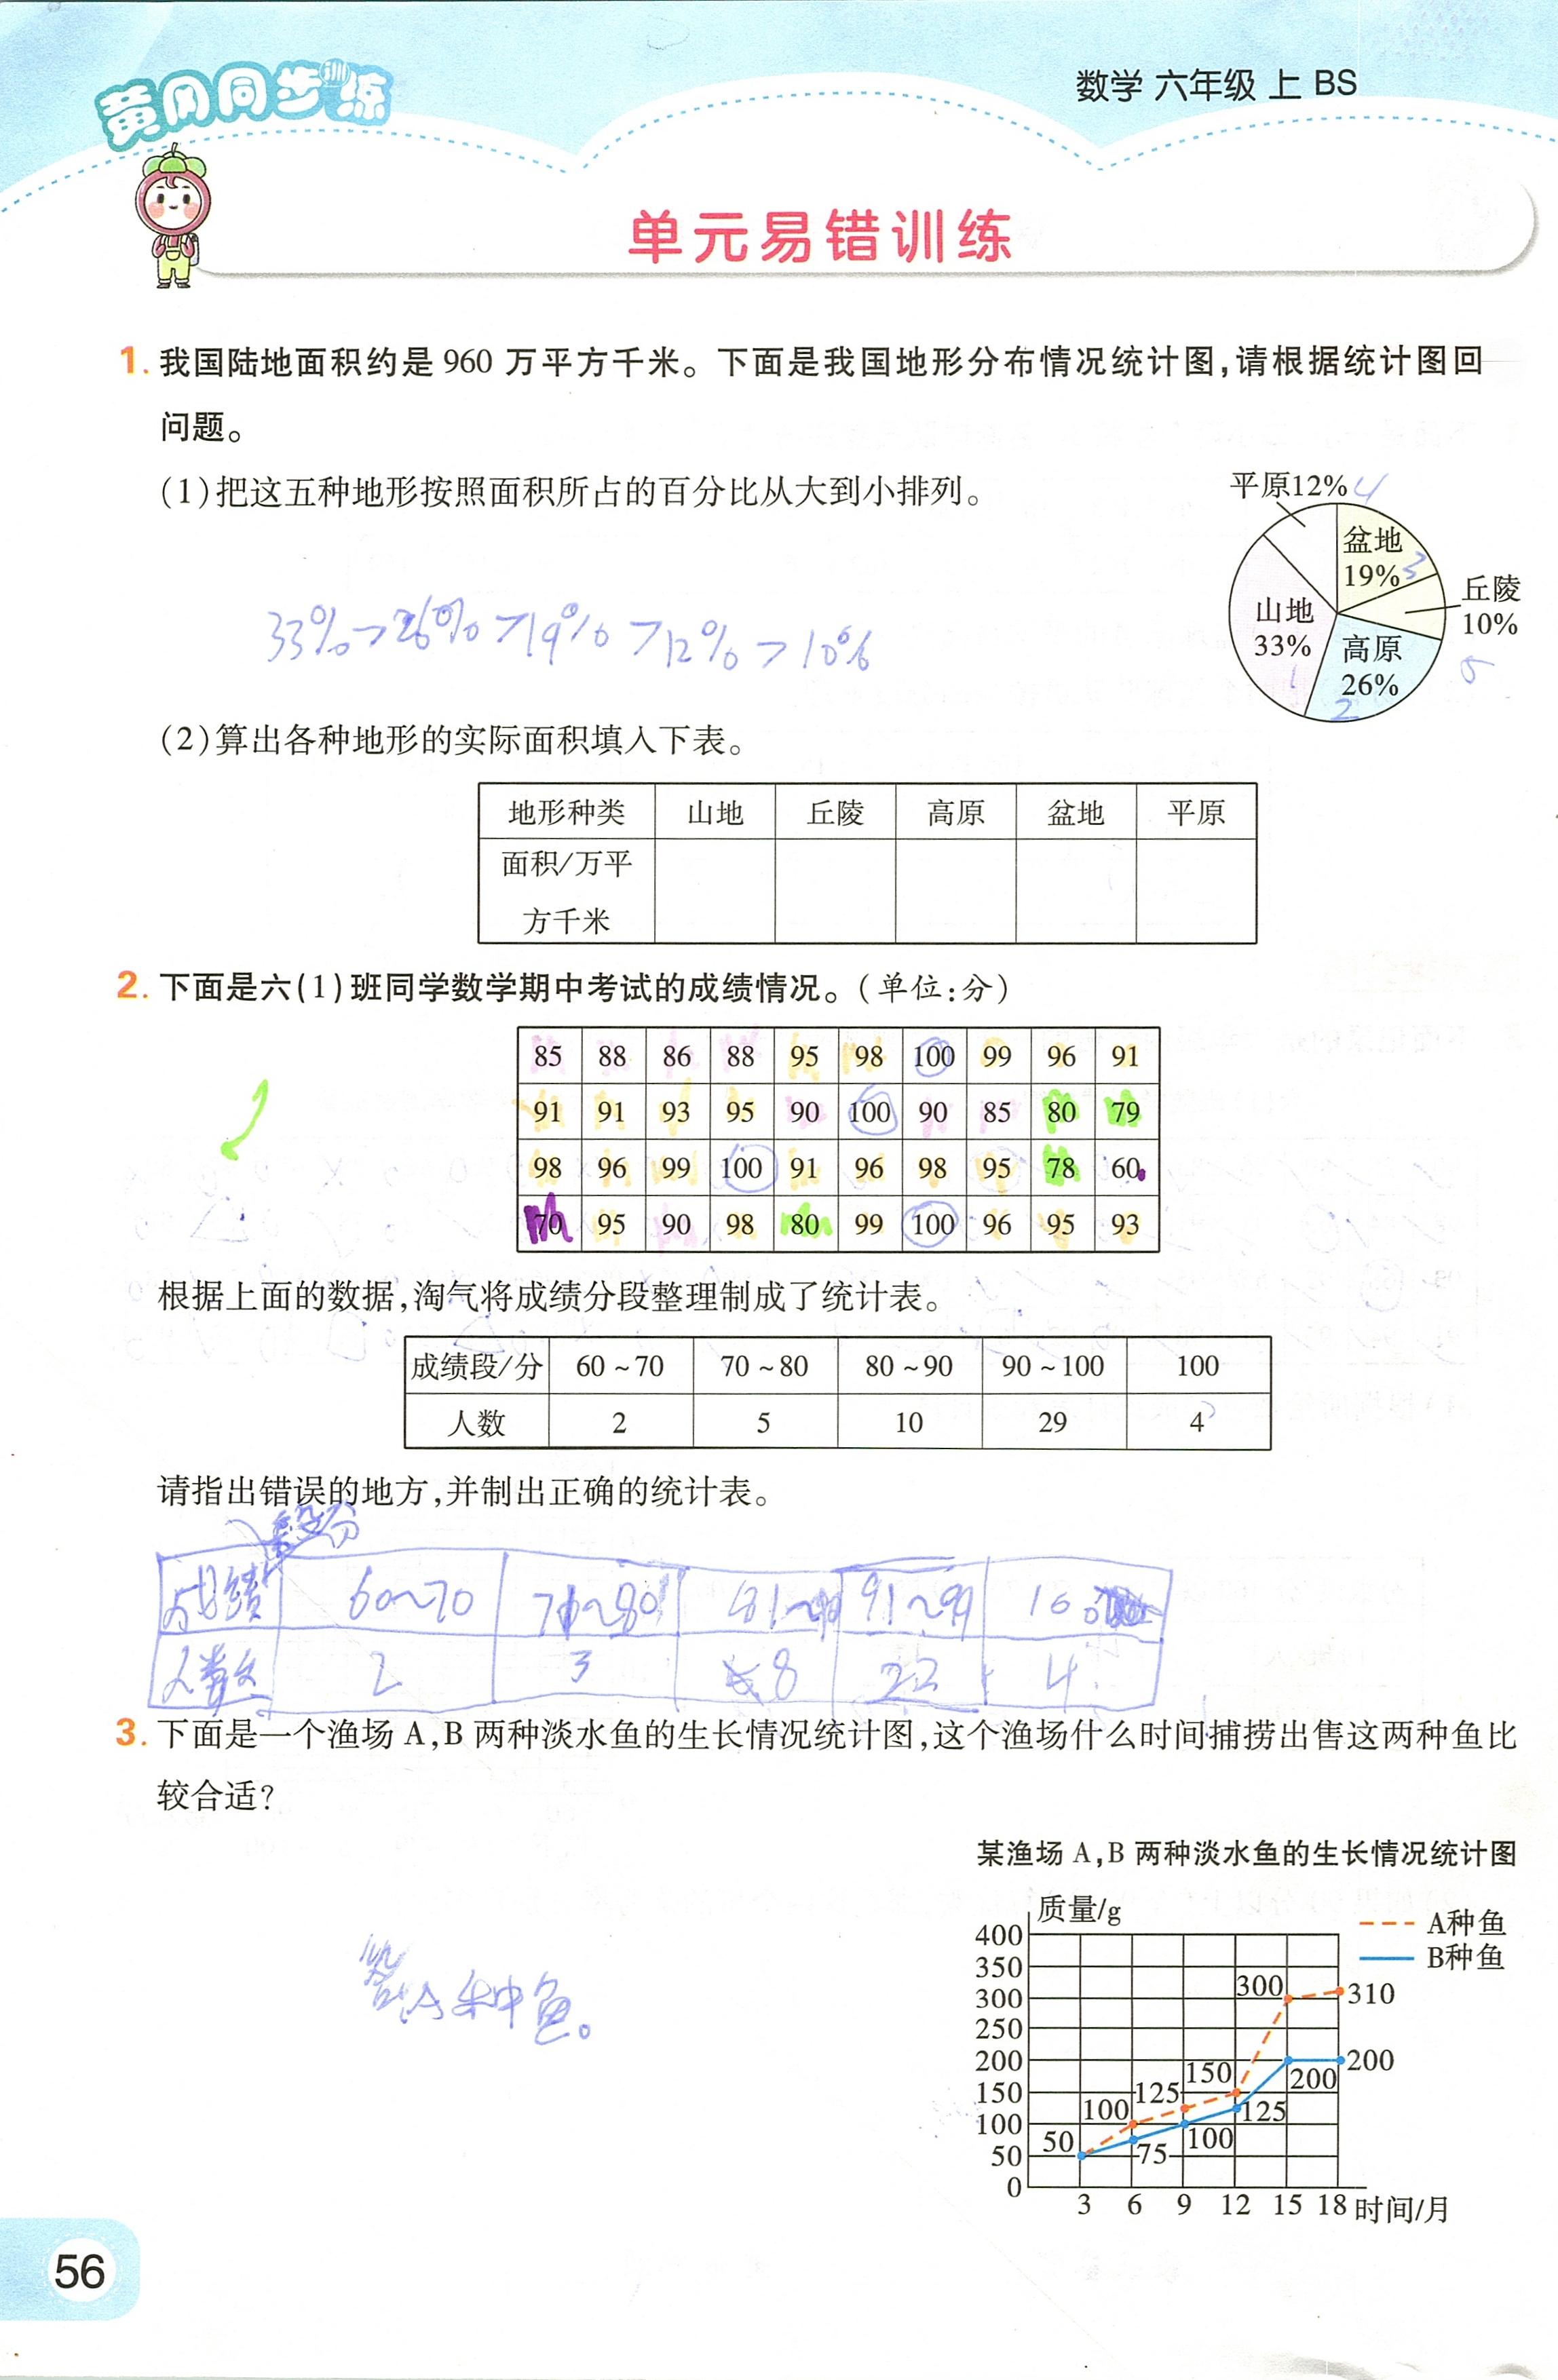 黄冈同步训练
数学 六年级 上 BS
单元易错训练
1. 我国陆地面积约是 960 万平方千米。下面是我国地形分布情况统计图,请根据统计图回
问题。
(1)把这五种地形按照面积所占的百分比从大到小排列。
平原12% 4
盆地
19% 3
丘陵
10%
5
山地
33%
1
高原
26%
2
33%>26%>19%>12%>10%
(2)算出各种地形的实际面积填入下表。
地形种类 山地 丘陵 高原 盆地 平原
面积/万平
方千米
2. 下面是六(1)班同学数学期中考试的成绩情况。(单位:分)
85 88 86 88 95 98 100 99 96 91
91 91 93 95 90 100 90 85 80 79
98 96 99 100 91 96 98 95 78 60
70 95 90 98 80 99 100 96 95 93
根据上面的数据,淘气将成绩分段整理制成了统计表。
成绩段/分 60~70 70~80 80~90 90~100 100
人数 2 5 10 29 4
请指出错误的地方,并制出正确的统计表。
段/分
成绩 60~70 71~80 81~90 91~99 100
人数 2 3 8 22 4
3. 下面是一个渔场 A,B 两种淡水鱼的生长情况统计图,这个渔场什么时间捕捞出售这两种鱼比
较合适?
答:A种鱼。
某渔场 A,B 两种淡水鱼的生长情况统计图
质量/g
A种鱼
B种鱼
400
350
300
250
200
150
100
50
0
300
310
200
200
150
125
125
100
100
75
50
3 6 9 12 15 18 时间/月
56